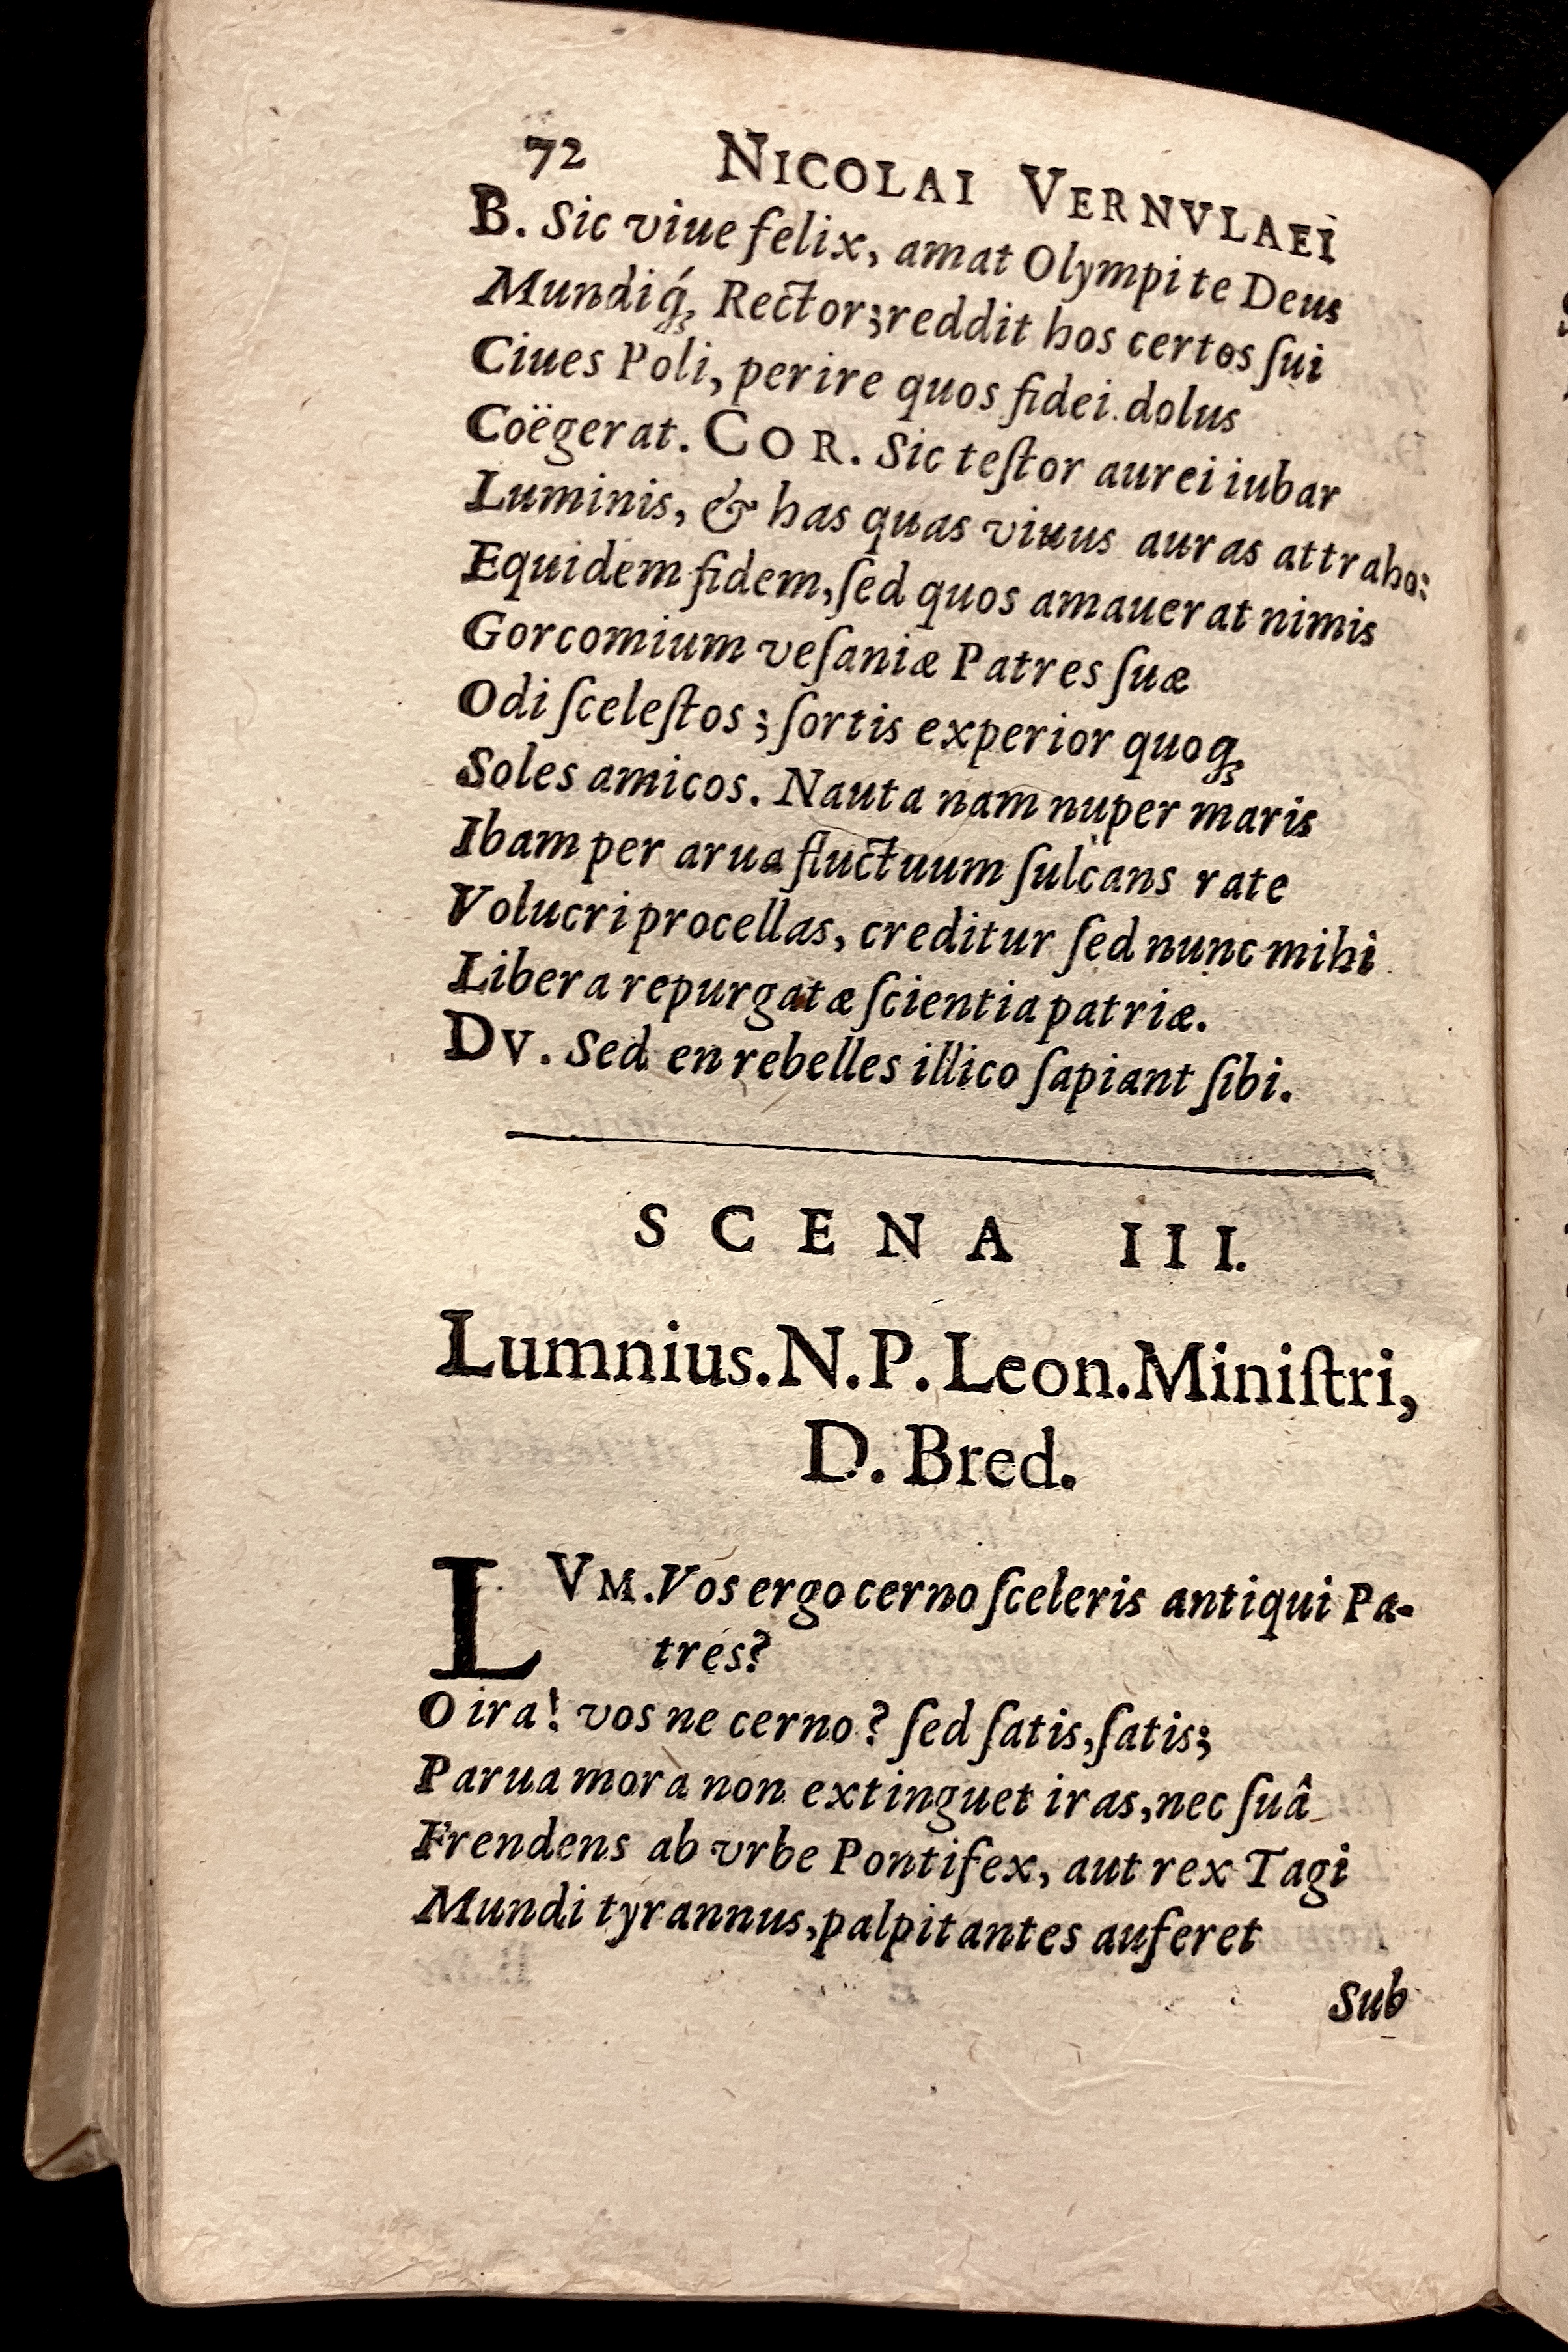 72 NICOLAI VERNVLAEI
B. Sic viue felix, amat Olympi te Deus
Mundiq́ꝫ Rector; reddit hos certos ſui
Ciues Poli, perire quos fidei dolus
Coëgerat. COR. Sic teſtor aurei iubar
Luminis, & has quas viuus auras attraho:
Equidem fidem, ſed quos amauerat nimis
Gorcomium veſaniæ Patres ſuæ
Odi ſceleſtos; ſortis experior quoqꝫ
Soles amicos. Nauta nam nuper maris
Ibam per arua fluctuum ſulcans rate
Volucri procellas, creditur ſed nunc mihi
Libera repurgatæ ſcientia patriæ.
DV. Sed en rebelles illico ſapiant ſibi.
SCENA III.
Lumnius. N. P. Leon. Miniſtri,
D. Bred.
LVM. Vos ergo cerno ſceleris antiqui Pa-
tres?
O ira! vos ne cerno? ſed ſatis, ſatis;
Parua mora non extinguet iras, nec ſuâ
Frendens ab vrbe Pontifex, aut rex Tagi
Mundi tyrannus, palpitantes auferet
Sub